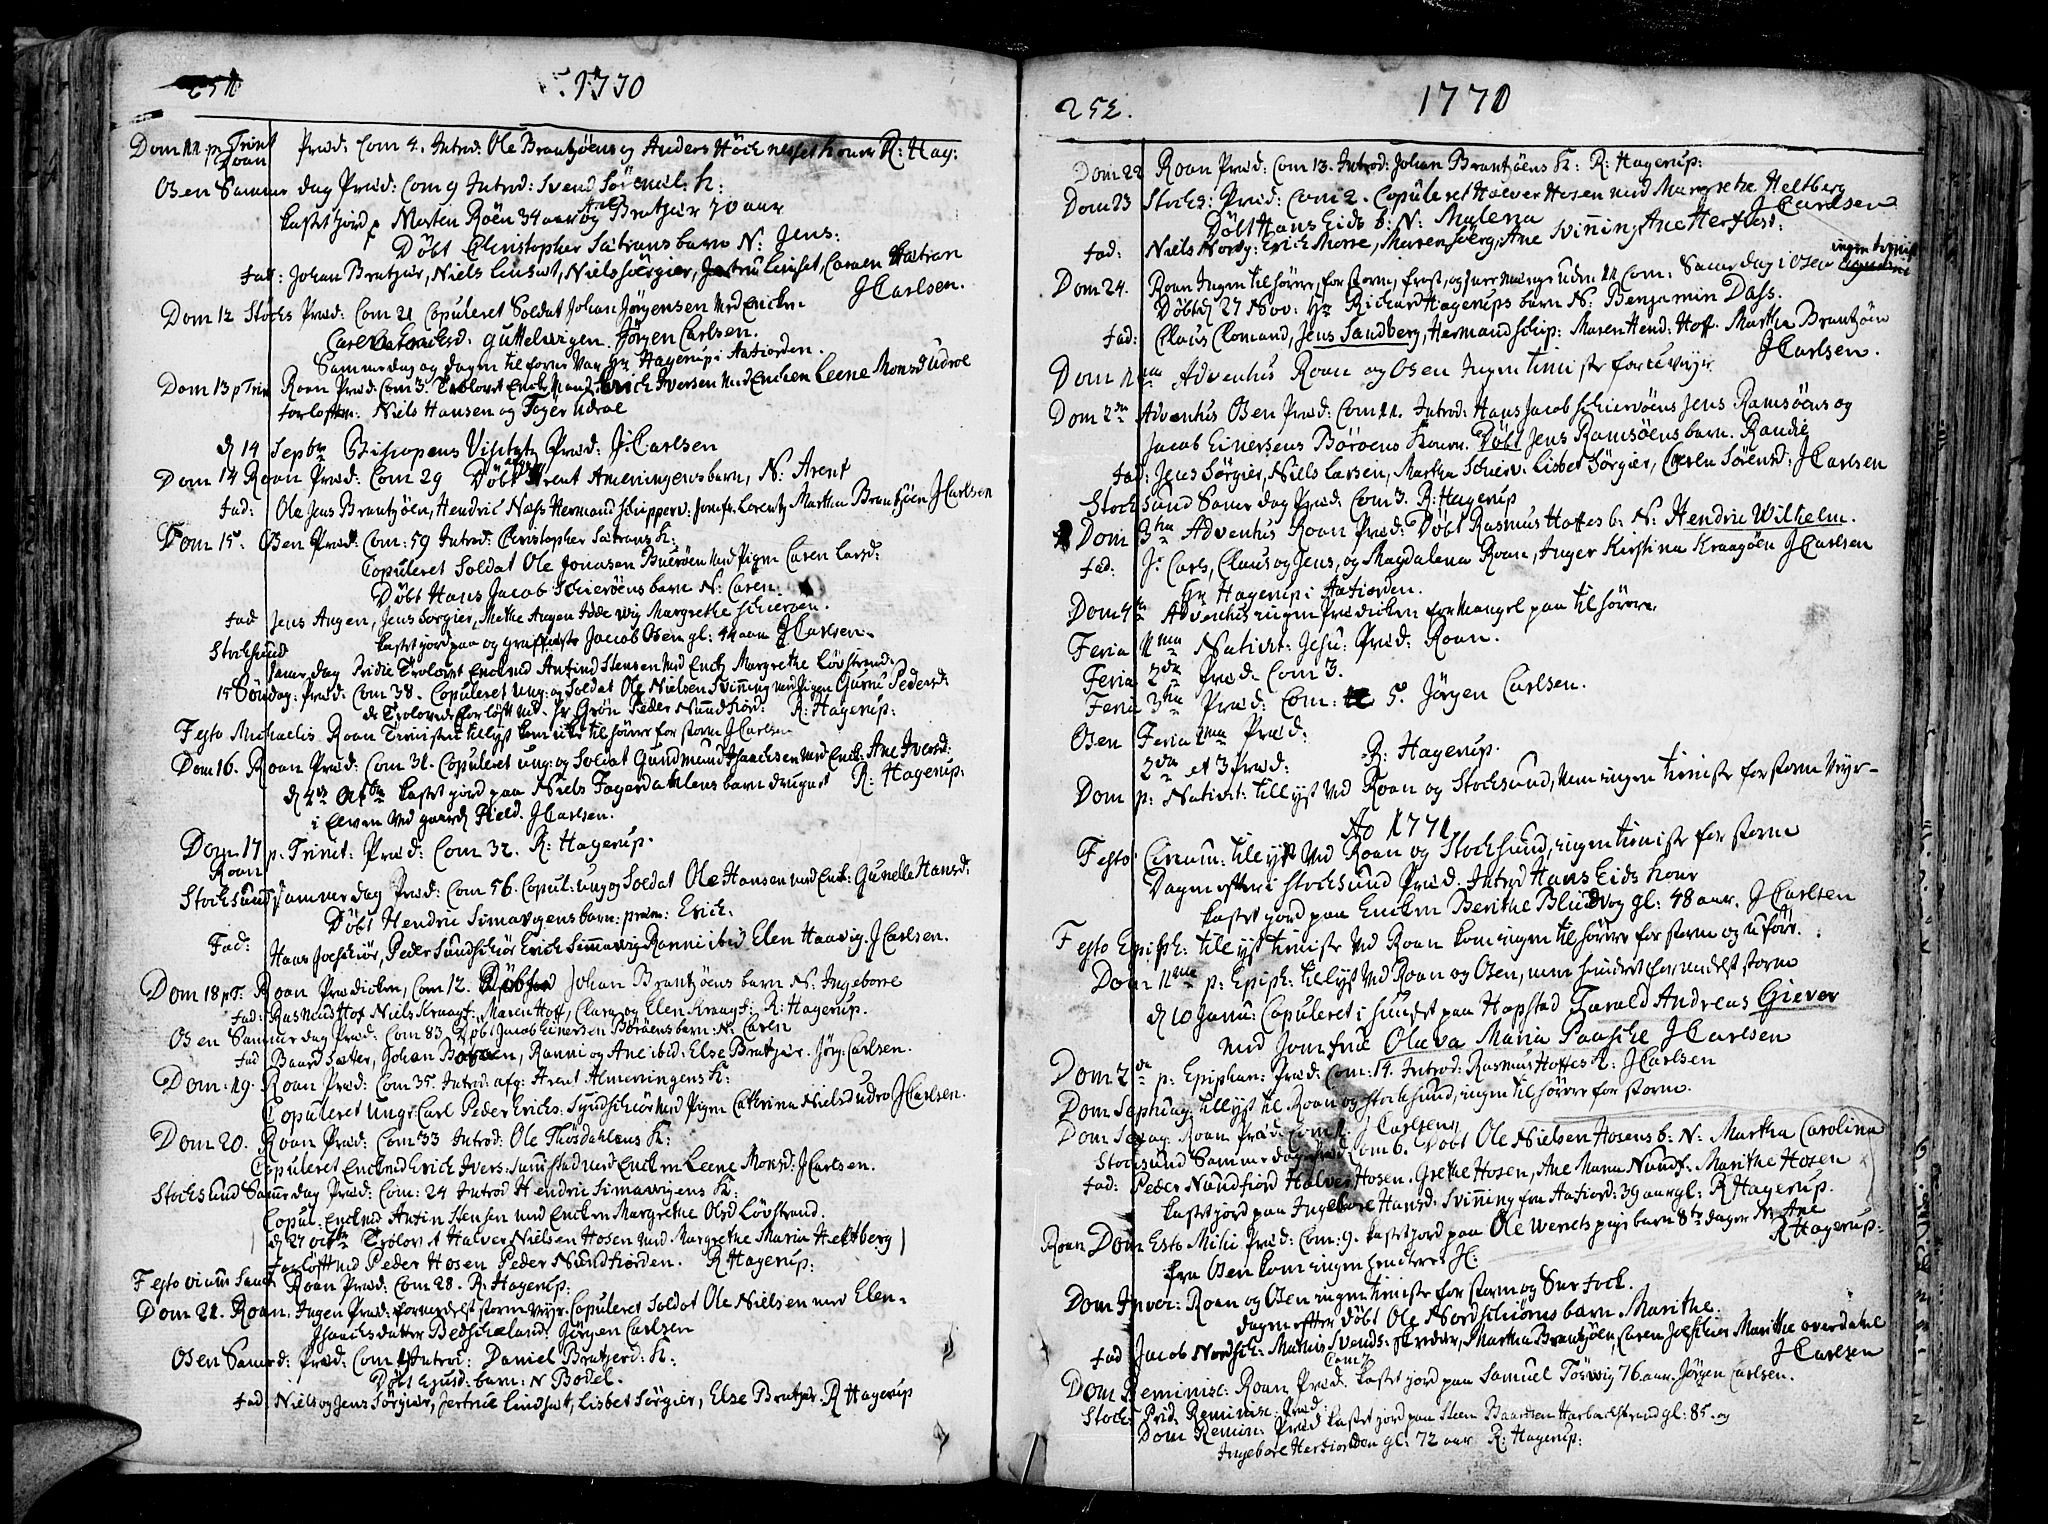 251
1770
Dom 11 p Trinit Roan Præd: Com 4. Introd: Ole Brantzöens og Anders Höcknesset koner R: Hag:
Osen Sammer dag Præd: Com 9 Introd: Svend Sörenil: K:
kastet Jord p Morten Roën 34 aar og Bratjær 70 aar
Döbt Christopher Sætrans barn N: Jens:
fad: Johan Bratjær, Niels Linset, Niels Sörgier, Linset, Caren Sætran
J Carlsen.
Dom 12 Stocs Præd: Com 21 Copuleret Soldat Johan Jörgensen med Encken
Guttelvigen. Jörgen Carlsen.
Sammerdag og dagen tilforne var Hr Hagerup i Aafiorden.
Dom 13 p Trin Roan Præd: Com 3. Trolovet Enck Mand Erich Iversen med Encken Leene Monsd Udroe
forlofter: Niels Hansen og Foger Udroe
d 14 Septbr Bispopens Visitatz Præd: J: Carlsen
Dom 14 Roan Præd: Com 29 Döbt Arent Ameningens barn, N: Arent
fad: Ole Jens Brantzöen, Hendric Næss Hermand Schipperv: Jomfr. Lorentz Martha Brantzöen J Carlsen
Dom 15. Osen Præd: Com: 59 Introd: Christopher Sætrans K:
Copuleret Soldat Ole Jonasen Bueröen med Pigen Caren Larsd:
Döbt Hans Jacob Schieröens barn N: Caren.
fad Jens Angen, Jens Sörgier, Mette Angen Margrethe Schieröen.
Stocksund kastet jord paa Jacob Osen gl: J Carlsen.
Samer dag Pridie Trolovet Enckmd Antind Stensen med Enck Margrethe Lövstrand:
15 Söndag: Præd: Com 38. Copuleret ung: og Soldat Ole Nielsen Svinning med Pigen Guru Pedersd:
de Trolovede forlöft med. Sr Grön Peder Nundfiord: R: Hagerup:
Festo Michaelis. Roan Tieniste tillyst kom icke tilhörer for storm J Carlsen
Dom 16. Roan Præd: Com 31. Copuleret ung: og Soldat Gundmund Isaachsen med Enck: Ane Iversd:
d 4de Octbr kastet jord paa Niels Fagerdahlens barn druknet R: Hagerup:
i Elven ved gaard Field. J Carlsen.
Dom 17 p. Trinit: Præd: Com 32. R: Hagerup.
Roan
Stocksund Sammerdag Præd: Com 56. Copul: ung og Soldat Ole Hansen med Enck: Gunelle Hansd:
Döbt Hendric Simavigens barn: Erich.
Fad: Hans Joeschiör, Peder Sundschiör Erich Simmavig Ranni ibid Elen Haavig. J Carlsen.
Dom 18 p T: Roan Prædicken, Com 12. Döbt Johan Brantzöens barn N. Ingebore
fad: Rasmus Hof Niels Kraagf: Maren Hoff, Clara og Elen Kraagf: R: Hagerup.
Osen Sammerdag Præd: Com 83 Döbt Jacob Einersen Böröens barn N: Caren
fad Baard Sætter, Johan, Ranni og Ane ibid: Else Bratjær. Jörg: Carlsen.
Dom: 19. Roan Præd: Com 35. Introd: afg: Arent Almeningens K:
Copuleret Ungr: Carl Peder Erichs: Syndschiör med Pigen Cathrina Nielsd Udro J Carlsen.
Dom 20. Roan Præd: Com 33 Introd: Ole Thösdahlens K:
Copuleret Enckmd Erich Ivers: Sumstad med Encken Leene Monsd: J Carlsen.
Stocksund Samerdag Præd: Com: 24 Introd Hendric Simavigens K:
Copul: Enckmd Antin Stensen med Encken Margrethe Olsd Lövstrand.
d 27 octbr Trolovet Halver Nielsen Hosen med Margrethe Maria Heltberg
forlöft med Peder Hosen Peder Nundfiorden. R Hagerup:
Festo omnium Sanct Roan Præd: Com 28. R: Hagerup:
Dom 21. Roan: Ingen Præd: formedelst storm veyr. Copuleret Soldat Ole Nielsen med Elen
Isaachsdatter Bedscheland. Jörgen Carlsen
Osen Samerd: Præd: Com Introd: Daniel Bratjerd: K:
Döbt barn: N Bodel.
fad: Niels og Jens Sörgier, Jertrue Lindset, Lisbet Sörgier, Else Bratjær. R Hagerup
252.
1770
Dom 22 Roan Præd: Com 13. Introd: Johan Brantzöens K: R: Hagerup:
Dom 23 Stocks: Præd: Com 2. Copuleret Halver Hosen med Margrethe Heltberg
Döbt Hans Eids b: N: Malena J Carlsen
fad: Niels Nordg: Erich Morre, Maren Söerg, Ane Svinning Ane Herfiord.
Dom 24. Roan Ingen tilhörer, for storm, frost, og Com: Samerdag i Osen ingen tienist
Döbt d 27 Nov: Hr Richard Hagerups barn N: Benjamin Dass.
fad: Claus Clomand, Jens Sandberg, Hermand Schip: Maren Hend: Hof. Martha Brantzöen
J Carlsen.
Dom 1ma Adventus Roan og Osen Ingen tieniste for uveyr
Dom 2da Adventus Osen Præd: Com 11. Introd: Hans Jacob Schieröens Jens Ramsöens og
Jacob Einersens Böröens koner. Döbt Jens Ramsöens barn. Randie
fad: Jens Sörgier, Niels Larsen, Martha Schierv: Lisbet Sörgier, Caren Sörensd: J Carlsen
Stocksund Samerdag Præd: Com 3. R: Hagerup
Dom 3tia Adventus Roan Præd: Döbt Rasmus Hoffes b: N: Hendric Wilhelm.
fad: J: Carls, Claus og Jens, og Magdalena Roan, Inger Kirstina Kraagöen J Carlsen
Hr Hagerup i Aafiorden.
Dom 4ta Adventus ingen Prædicken for Mangel paa tilhörere
Feria 1ma Nativit: Jesu: Præd: Roan.
Feria 2da Præd: Com 3.
Feria 3tia Præd: Com: 5. Jörgen Carlsen.
Osen Feria 1ma Præd:
2da et 3 præd: R: Hagerup.
Dom p: Nativit: tillyst ved Roan og Stocksund, men ingen tieniste for storm veyr
Ao 1771
Festo Circum: tillyst ved Roan og Stocksund, ingen tieniste for storm
Dagen efter i Stocksund Præd: Introd Hans Eids kone
kastet jord paa Encken Berithe Blidvog gl: 48 aar. J Carlsen
Festo Epiph: tillyst tieniste ved Roan kom ingen tilhörere for storm og uföre.
Dom 1ma p: Epiph: tillyst ved Roan og Osen, men hindret formedelst storm
d 10 Janu: Copuleret i huuset paa Hopstad Tarald Andreas Giever
med Jomfrue Olava Maria Paasche J Carlsen
Dom 2da p: Epiphan: Præd: Com: 14. Introd: Rasmus Hoffes K: J Carlsen
Dom Septuag: tillyst til Roan og Stocksund, ingen tilhörere for storm.
Dom Sexag: Roan Præd: J Carlsen
Stocksund Sammerdag Com 6. Döbt Ole Nielsen Hosens b: N: Martha Carolina
fad: Peder Nundfiord Halver Hosen. Grethe Hosen, Ane Maria Nundf: Marithe Hosen
kastet jord paa Ingebore Hansd: Svinning fra Aafiord: 39 aar gl: R Hagerup.
Roan Dom Esto Mihi Præd: Com: 9. kastet jord paa Ole barn 8te dager N: Ane
fra Osen kom ingen J C: R Hagerup:
Dom Invoc: Roan og Osen ingen tieniste for storm og Snefock.
dagen effter Döbt Ole Nordschiörns barn Marithe.
fad Jacob Nordsch: Mathis Svends: Skreder, Martha Brantzöen, Caren Joeschier Marithe overdahl
J Carlsen
Dom Reminisc: Roan Præd. Com 7 kastet jord paa Samuel Tösvig 76 aar. Jörgen Carlsen.
Stock: Prid. Reminisc: Præd:
Dom Remin: Præd kastet jord paa Sten Baardsen Harbachstrand gl: 85. og
Ingebore Herfiorden gl: 72 aar R: Hagerup: